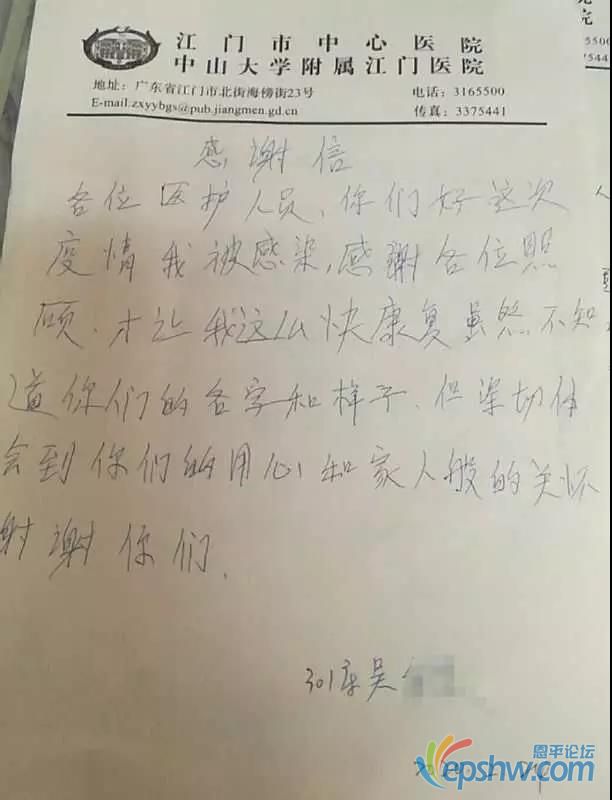 江门市中心医院
中山大学附属江门医院
地址：广东省江门市北街海傍街23号 电话：3165500
E-mail.zxyybgs@pub.jiangmen.gd.cn 传真：3375441
感谢信
各位医护人员，你们好这次
疫情我被感染，感谢各位照
顾．才让我这么快康复虽然不知
道你们的名字和样子．但深切体
会到你们的用心和家人般的关怀
谢谢你们．
301床吴
恩平论坛
epshw.com